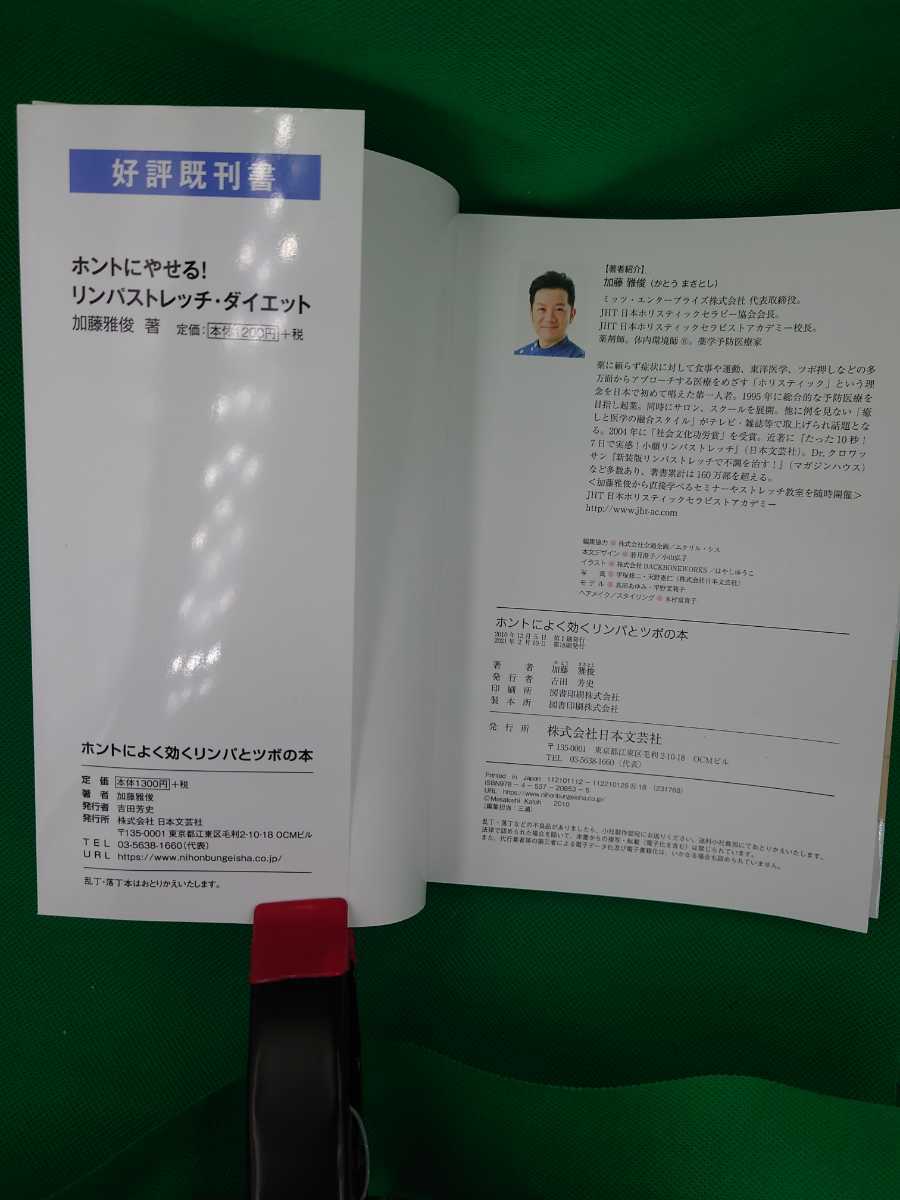 好評既刊書
ホントにやせる!
リンパストレッチ・ダイエット
加藤雅俊 著 定価:本体1200円+税
ホントによく効くリンパとツボの本
定 価 本体1300円+税
著 者 加藤雅俊
発行者 吉田芳史
発行所 株式会社 日本文芸社
〒135-0001 東京都江東区毛利2-10-18 OCMビル
TEL 03-5638-1660(代表)
URL https://www.nihonbungeisha.co.jp/
乱丁・落丁本はおとりかえいたします。
【著者紹介】
加藤 雅俊(かとう まさとし)
ミッツ・エンタープライズ株式会社 代表取締役。
JHT 日本ホリスティックセラピー協会会長。
JHT 日本ホリスティックセラピストアカデミー校長。
薬剤師。体内環境師®。薬学予防医療家
薬に頼らず症状に対して食事や運動、東洋医学、ツボ押しなどの多
方面からアプローチする医療をめざす「ホリスティック」という理
念を日本で初めて唱えた第一人者。1995年に総合的な予防医療を
目指し起業。同時にサロン、スクールを展開。他に例を見ない「癒
しと医学の融合スタイル」がテレビ・雑誌等で取上げられ話題とな
る。2004年に「社会文化功労賞」を受賞。近著に『たった10秒!
7日で実感!小顔リンパストレッチ』(日本文芸社)。Dr.クロワッ
サン『新装版リンパストレッチで不調を治す!』(マガジンハウス)
など多数あり、著書累計は160万部を超える。
<加藤雅俊から直接学べるセミナーやストレッチ教室を随時開催>
JHT 日本ホリスティックセラピストアカデミー
http://www.jht-ac.com
編集協力 ● 株式会社全通企画/エクリル・シス
本文デザイン ● 若月恭子/小山弘子
イラスト ● 株式会社BACKBONEWORKS/はやしゆうこ
写 真 ● 天野憲仁(株式会社日本文芸社)
モデル ●
ヘアメイク/スタイリング ● 木村
ホントによく効くリンパとツボの本
2010年12月5日 第1刷発行
2021年2月10日 第18刷発行
著 者 加藤 雅俊
発行者 吉田 芳史
印刷所 図書印刷株式会社
製本所 図書印刷株式会社
発行所 株式会社日本文芸社
〒135-0001 東京都江東区毛利2-10-18 OCMビル
TEL 03-5638-1660(代表)
Printed in Japan 112101112-112210125Ⓝ18 (231768)
ISBN978-4-537-20853-5
URL https://www.nihonbungeisha.co.jp/
©Masatoshi Katoh 2010
(編集担当:三浦)
乱丁・落丁などの不良品がありましたら、小社製作部宛にお送りください。送料小社負担にておとりかえいたします。
法律で認められた場合を除いて、本書からの複写・転載(電子化を含む)は禁じられています。
また、代行業者等の第三者による電子データ化及び電子書籍化は、いかなる場合も認められていません。